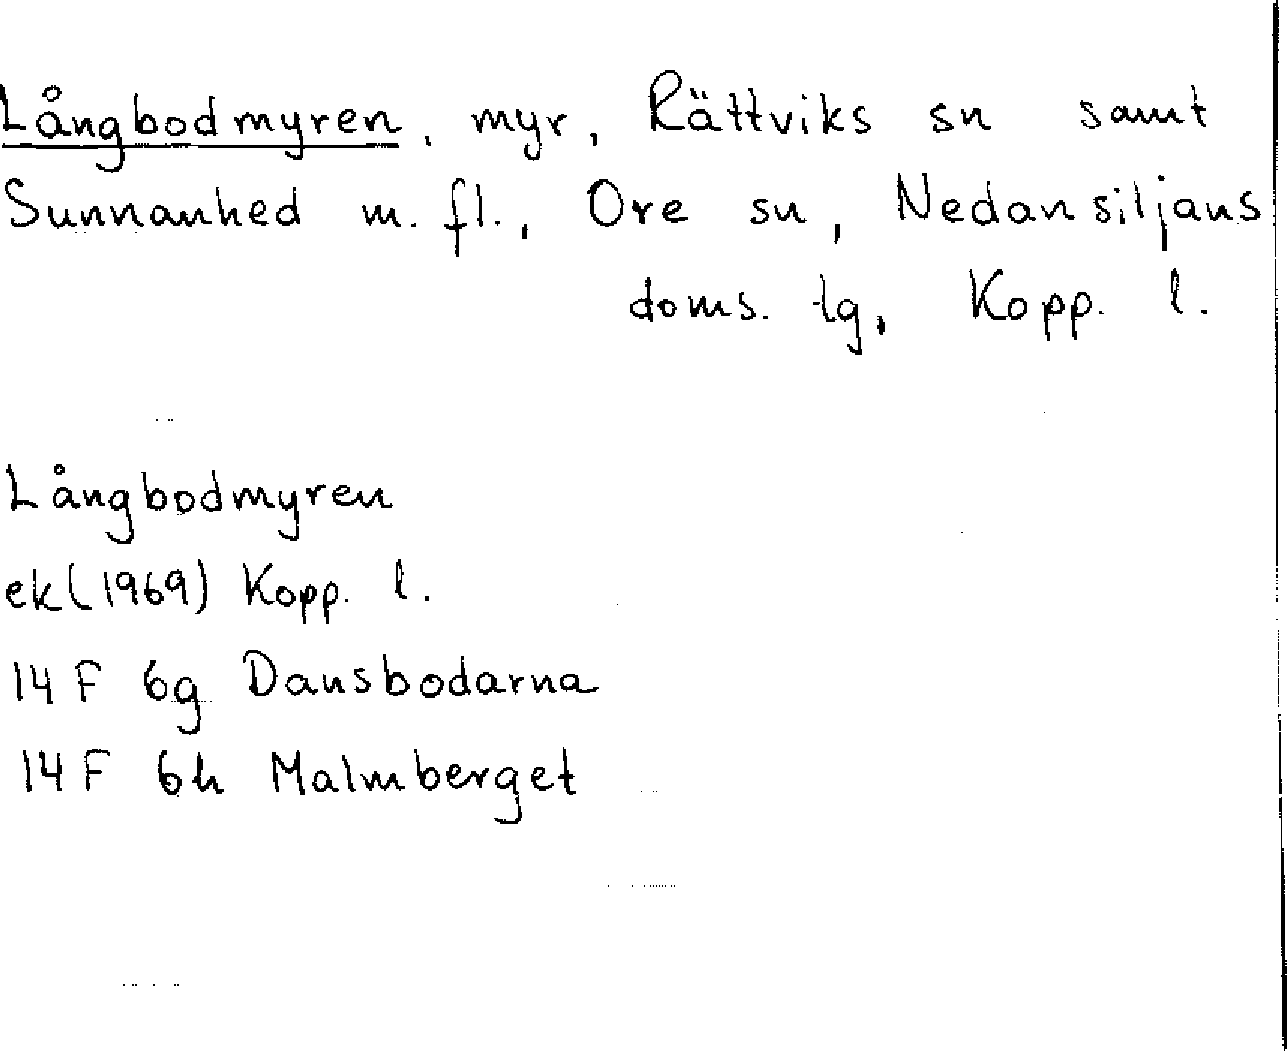 Långbodmyren, myr, Rättviks sn samt
Sunnanhed m. fl., Ore sn, Nedansiljans
doms. lg, Kopp. l.
Långbodmyren
ek (1969) Kopp. l.
14 F 6g Dansbodarna
14 F 6h Malmberget